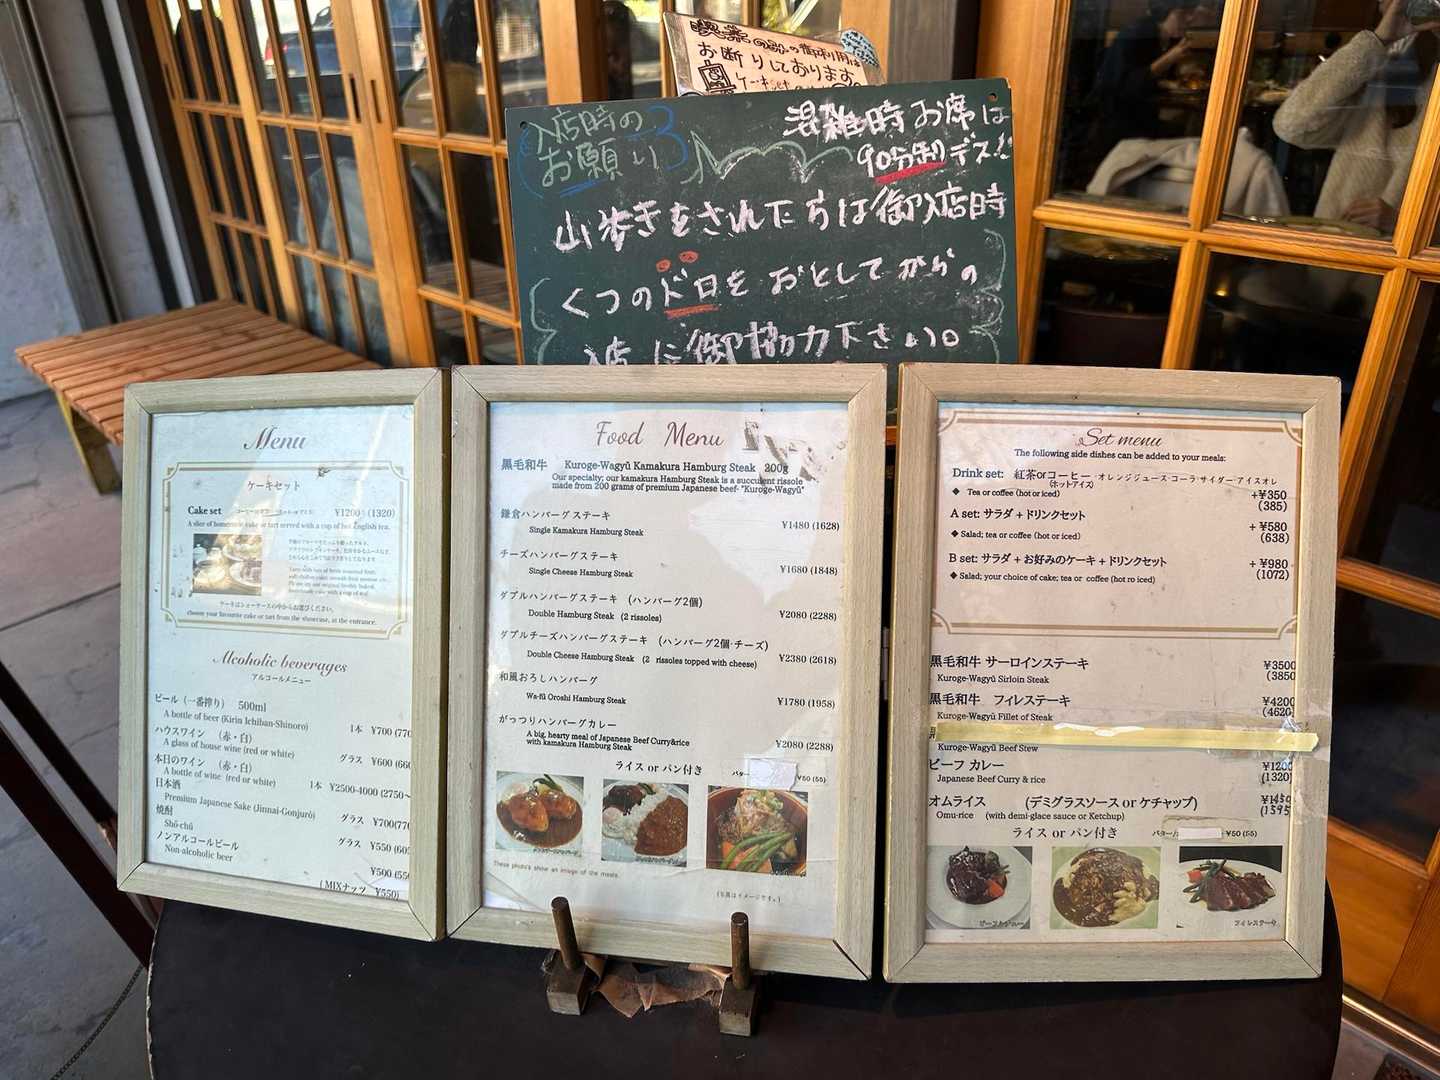 喫茶のみの御利用は
お断りしております
ケーキset
入店時の
お願い
混雑時お席は
90分制デス!!
山歩きをされた方は御入店時
くつのドロをおとしてからの
入店に御協力下さい。
Menu
ケーキセット
Cake set
¥1200 (1320)
A slice of homemade cake or tart served with a cup of hot English tea.
ケーキはショーケースの中からお選びください。
choose your favourite cake or tart from the showcase, at the entrance.
Alcoholic beverages
アルコールメニュー
ビール（一番搾り） 500ml
A bottle of beer (Kirin Ichiban-Shinoro) 1本 ¥700 (770
ハウスワイン （赤・白）
A glass of house wine (red or white) グラス ¥600 (660
本日のワイン （赤・白）
A bottle of wine (red or white) 1本 ¥2500-4000 (2750~
日本酒
Premium Japanese Sake (Jinnai-Gonjurō) グラス ¥700(770
焼酎
Shō-chū グラス ¥550 (605
ノンアルコールビール
Non-alcoholic beer ¥500 (550
(MIXナッツ ¥550)
Food Menu
黒毛和牛 Kuroge-Wagyū Kamakura Hamburg Steak 200g
Our specialty; our kamakura Hamburg Steak is a succulent rissole
made from 200 grams of premium Japanese beef- "Kuroge-Wagyū"
鎌倉ハンバーグ ステーキ
Single Kamakura Hamburg Steak ¥1480 (1628)
チーズハンバーグステーキ
Single Cheese Hamburg Steak ¥1680 (1848)
ダブルハンバーグステーキ (ハンバーグ2個)
Double Hamburg Steak (2 rissoles) ¥2080 (2288)
ダブルチーズハンバーグステーキ (ハンバーグ2個·チーズ)
Double Cheese Hamburg Steak (2 rissoles topped with cheese) ¥2380 (2618)
和風おろしハンバーグ
Wa-fū Oroshi Hamburg Steak ¥1780 (1958)
がっつりハンバーグカレー
A big, hearty meal of Japanese Beef Curry&rice
with kamakura Hamburg Steak ¥2080 (2288)
ライス or パン付き バター ¥50 (55)
These photo's shine an image of the meals.
(写真はイメージです。)
Set menu
The following side dishes can be added to your meals:
Drink set: 紅茶orコーヒー・オレンジジュース・コーラ・サイダー・アイスオレ
(ホットアイス)
◆ Tea or coffee (hot or iced) +¥350
(385)
A set: サラダ + ドリンクセット
◆ Salad; tea or coffee (hot or iced) + ¥580
(638)
B set: サラダ + お好みのケーキ + ドリンクセット
◆ Salad; your choice of cake; tea or coffee (hot ro iced) + ¥980
(1072)
黒毛和牛 サーロインステーキ
Kuroge-Wagyū Sirloin Steak ¥3500
(3850
黒毛和牛 フィレステーキ
Kuroge-Wagyū Fillet of Steak ¥4200
(4620
Kuroge-Wagyū Beef Stew
ビーフ カレー
Japanese Beef Curry & rice ¥1200
(1320
オムライス (デミグラスソース or ケチャップ)
Omu-rice (with demi-glace sauce or Ketchup) ¥1450
(1595
ライス or パン付き バター/ ¥50 (55)
ビーフシチュー
フィレステーキ